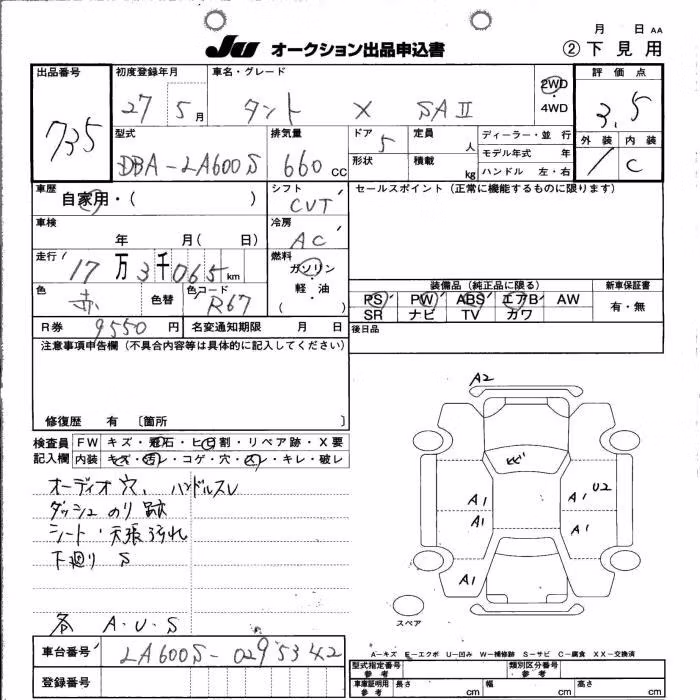 月 日 AA
JU オークション出品申込書 ②下見用
出品番号 初度登録年月 車名・グレード 評価点
735 27 5月 タント X SAⅡ 2WD 4WD 3.5
型式 排気量 ドア 定員 ディーラー・並行 外装 内装
DBA-LA600S 660cc 5 人 モデル年式 年 C
形状 積載 kg ハンドル 左・右
車歴 自家用・( ) シフト CVT セールスポイント(正常に機能するものに限ります)
車検 年 月( 日) 冷房 AC
走行 17万3千065km 燃料 ガソリン・軽油 ( )
色 赤 色替 色コード R67 装備品(純正品に限る) 新車保証書
PS PW ABS エアB AW 有・無
SR ナビ TV カワ
R券 9550円 名変通知期限 月 日 後日品
注意事項申告欄(不具合内容等は具体的に記入してください)
修復歴 有 〔箇所 〕
検査員 FW キズ・飛石・ヒビ割・リペア跡・X要
記入欄 内装 キズ・汚レ・コゲ・穴・スレ・キレ・破レ
A2
オーディオ穴、ハンドルスレ
ダッシュ のり 跡
シート・天張汚れ
下廻り S
A1 A1 U2
A1 A1
A1
スペア
各 A・U・S
A-キズ E-エクボ U-凹み W-補修跡 S-サビ C-腐食 XX-交換済
車台番号 LA600S-0295342
登録番号
型式指定番号 参考 類別区分番号 参考
車庫証明用 参考 長さ cm 幅 cm 高さ cm